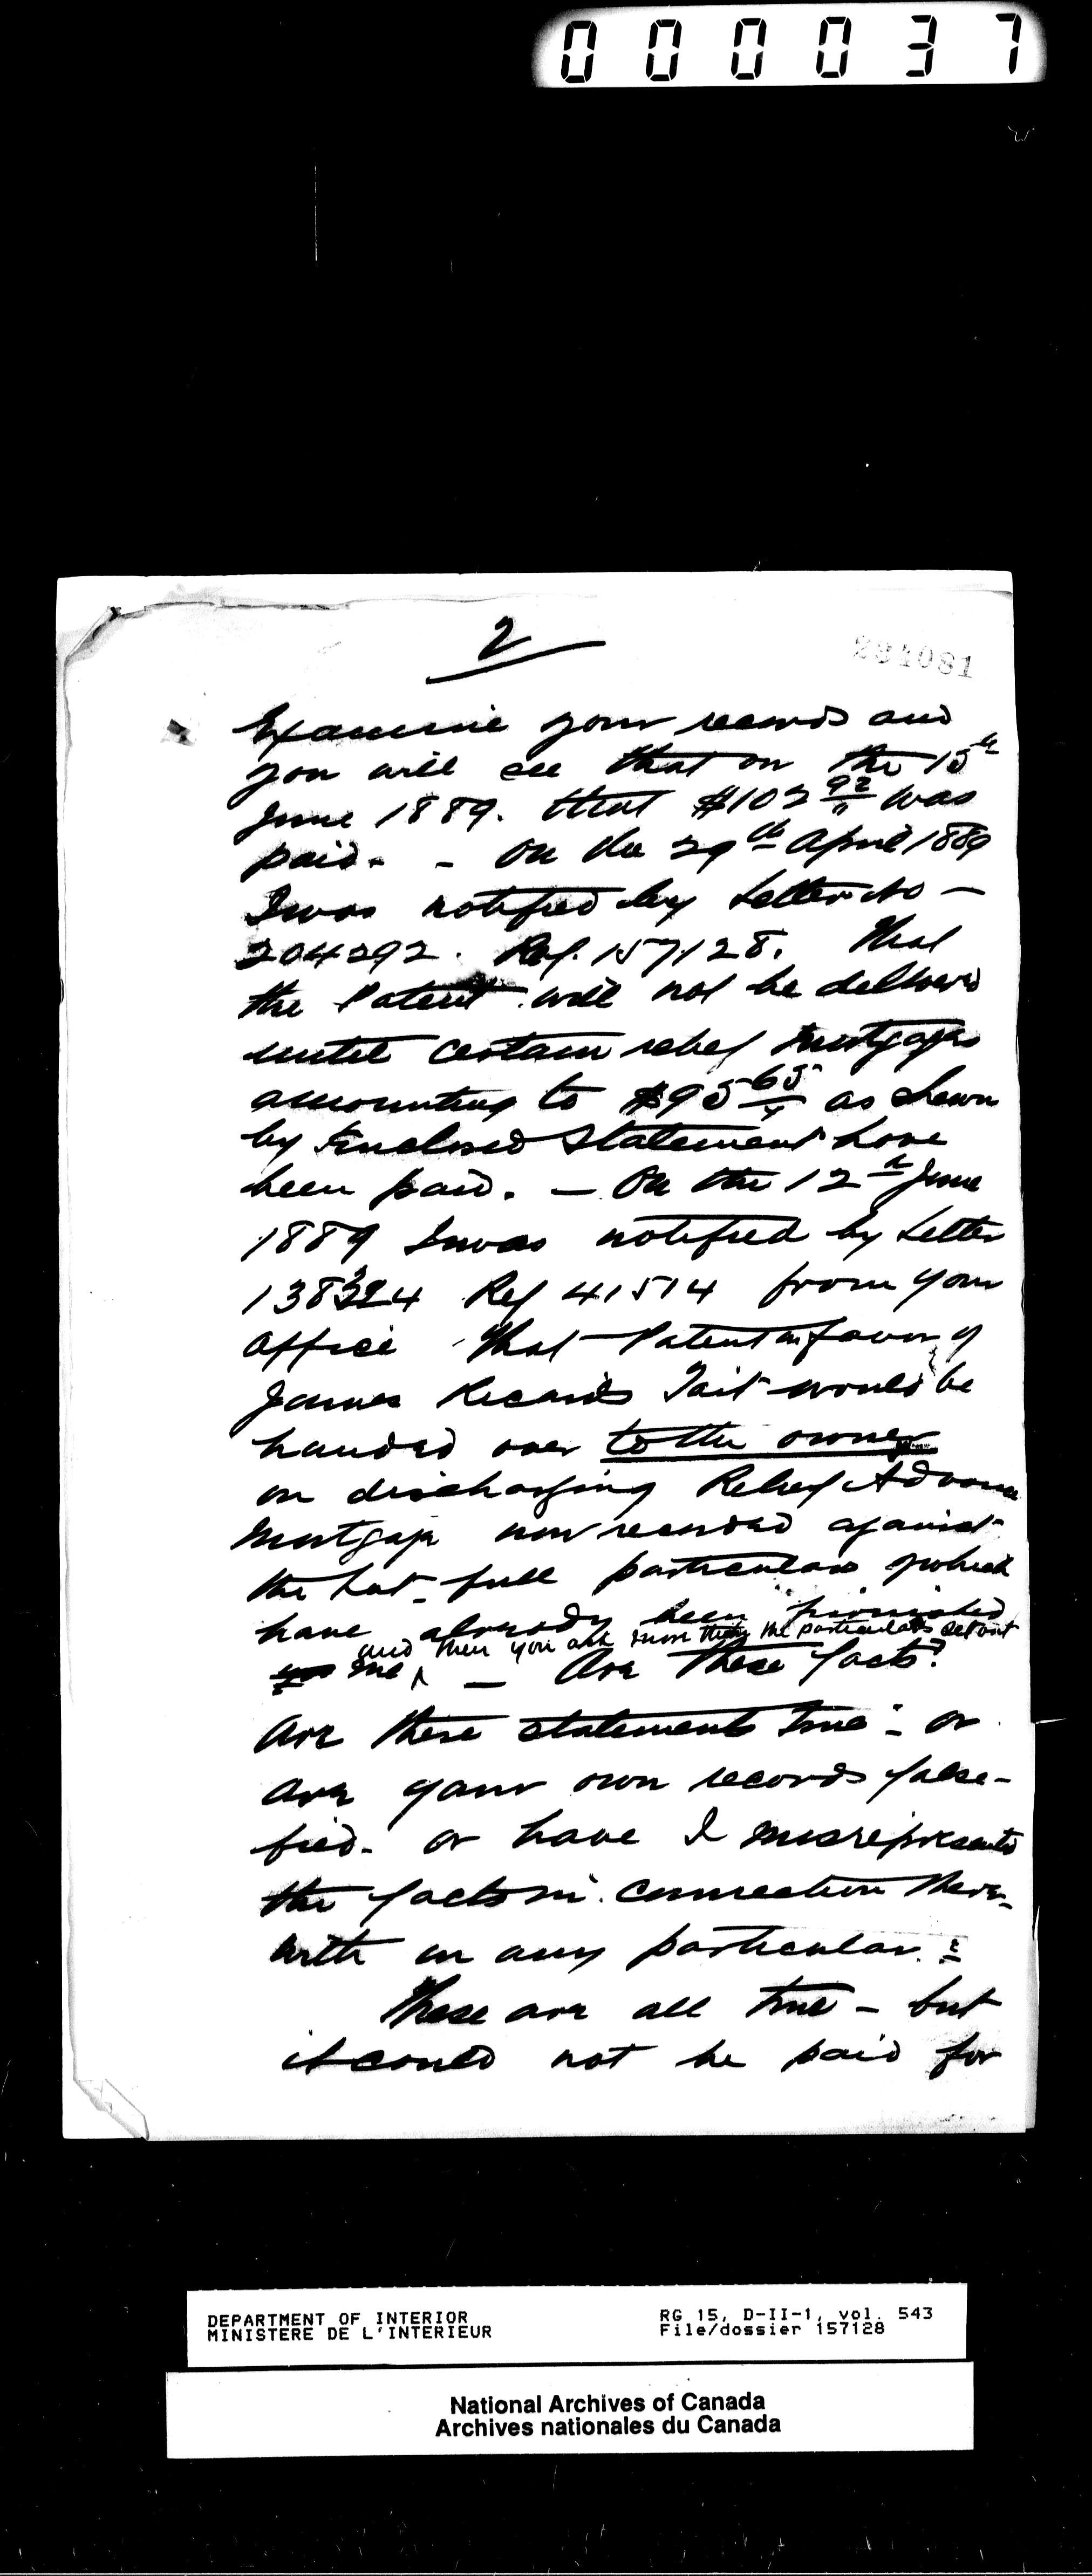 000037
2
234081
Examine your records and
you will see that on the 15th
June 1889. that $102 92/" was
paid. - On the 29th April 1889
I was notified by Letter No -
204292. Ref. 157128. That
the Patent will not be delivered
until certain relief mortgages
amounting to $95 65/" as shewn
by Enclosed Statement have
been paid. - On the 12th June
1889 I was notified by Letter
138324 Ref 41514 from your
office that Patent in favor of
James Tait would be
handed over to the owner
on discharging Relief Advance
Mortgage now recorded against
the Lot - full particulars of which
have already been furnished
and then you ask more than the particulars set out
me ^ - Are these facts?
Are these statements true - or
are your own records false-
fied. or have I misrepresented
the facts in connection there-
with in any particular.
These are all true - but
it could not be paid for
DEPARTMENT OF INTERIOR
MINISTERE DE L'INTERIEUR
RG 15, D-II-1, vol. 543
File/dossier 157128
National Archives of Canada
Archives nationales du Canada